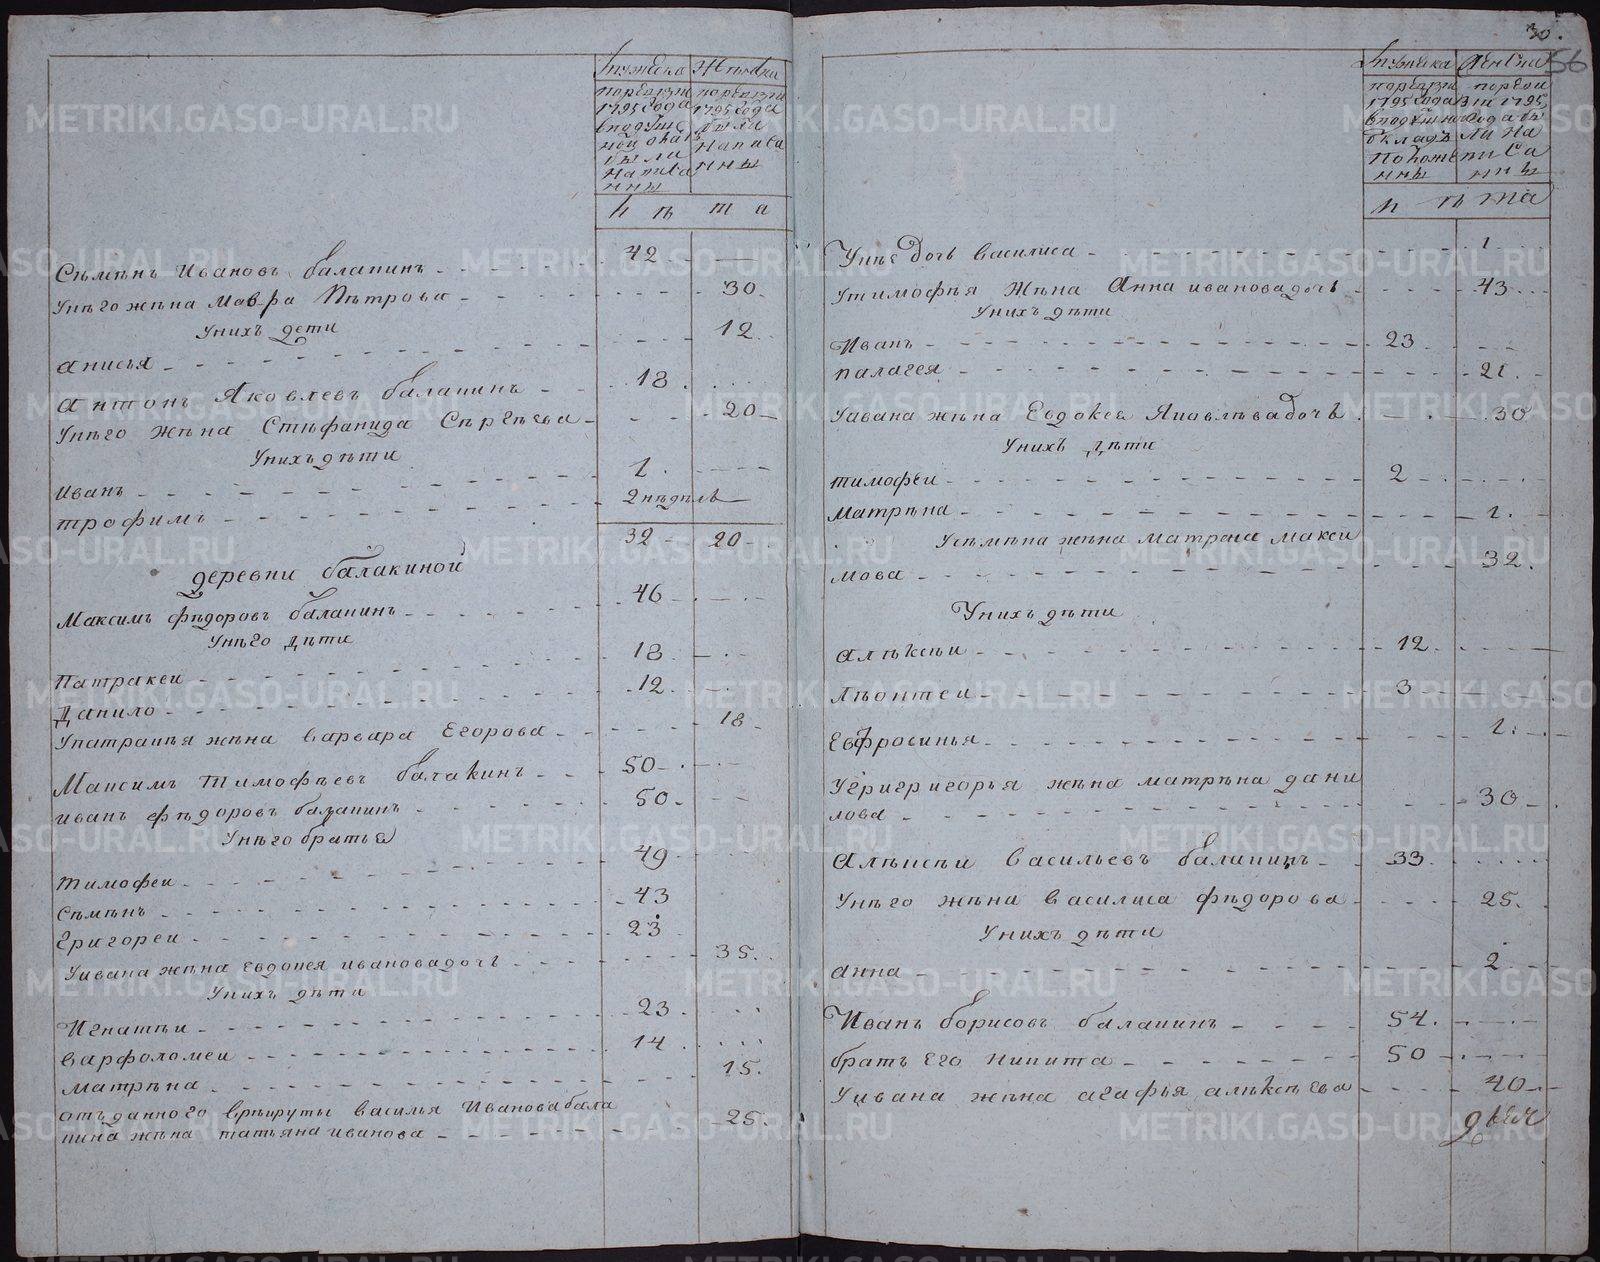 мужска женска
поревизи поревизи
1795 года 1795 года
вподуш были
ной окла написа
были нны
написа
нны
л ѣ т а
Сѣмѣнъ Ивановъ балакинъ 42
Унѣго жѣна Мавра Пѣтрова 30
Унихъ дети 12
анисья
антонъ Яковлевъ балакинъ 18
Унѣго жѣна Стѣфанида Сѣргѣева 20
Унихъ дѣти
иванъ 1
трофимъ 2 нѣдѣль
32 20
деревни балакиной
Максимъ фѣдоровъ балакинъ 46
Унѣго дѣти
Патракеи 18
Данило 12
Упатракѣя жѣна варвара Егорова 18
Максимъ тимофѣевъ балакинъ 50
иванъ фѣдоровъ балакинъ 50
Унѣго братья
тимофеи 49
Сѣмѣнъ 43
григореи 23
Уивана жѣна евдокея ивановадочь 35
Унихъ дѣти
Игнатѣи 23
варфоломеи 14
матрѣна 15
отъданного врѣкруты василья Иванова бала
кина жѣна татьяна иванова 25
30.
56
мужска женска
поревизи поревизи
1795 года 1795
вподушно года бы
окладъ ли на
положе писа
нны нны
л ѣ та
Унѣе дочь василиса 1
Утимофѣя жѣна Анна ивановадочь 43
Унихъ дѣти
Иванъ 23
палагея 21
Уивана жѣна Евдокея Яковлѣвадочь 30
Унихъ дѣти
тимофеи 2
матрѣна 1
Усѣмѣна жѣна матрона макси
мова 32
Унихъ дѣти
алѣксѣи 12
лѣонтеи 3
Евфросинья 1
Угригорья жѣна матрѣна дани
лова 30
алѣксѣи васильевъ балакинъ 33
Унѣго жѣна василиса фѣдорова 25
Унихъ дѣти
анна 2
Иванъ борисовъ балакинъ 54
братъ его никита 50
Уивана жѣна агафья алѣксѣева 40